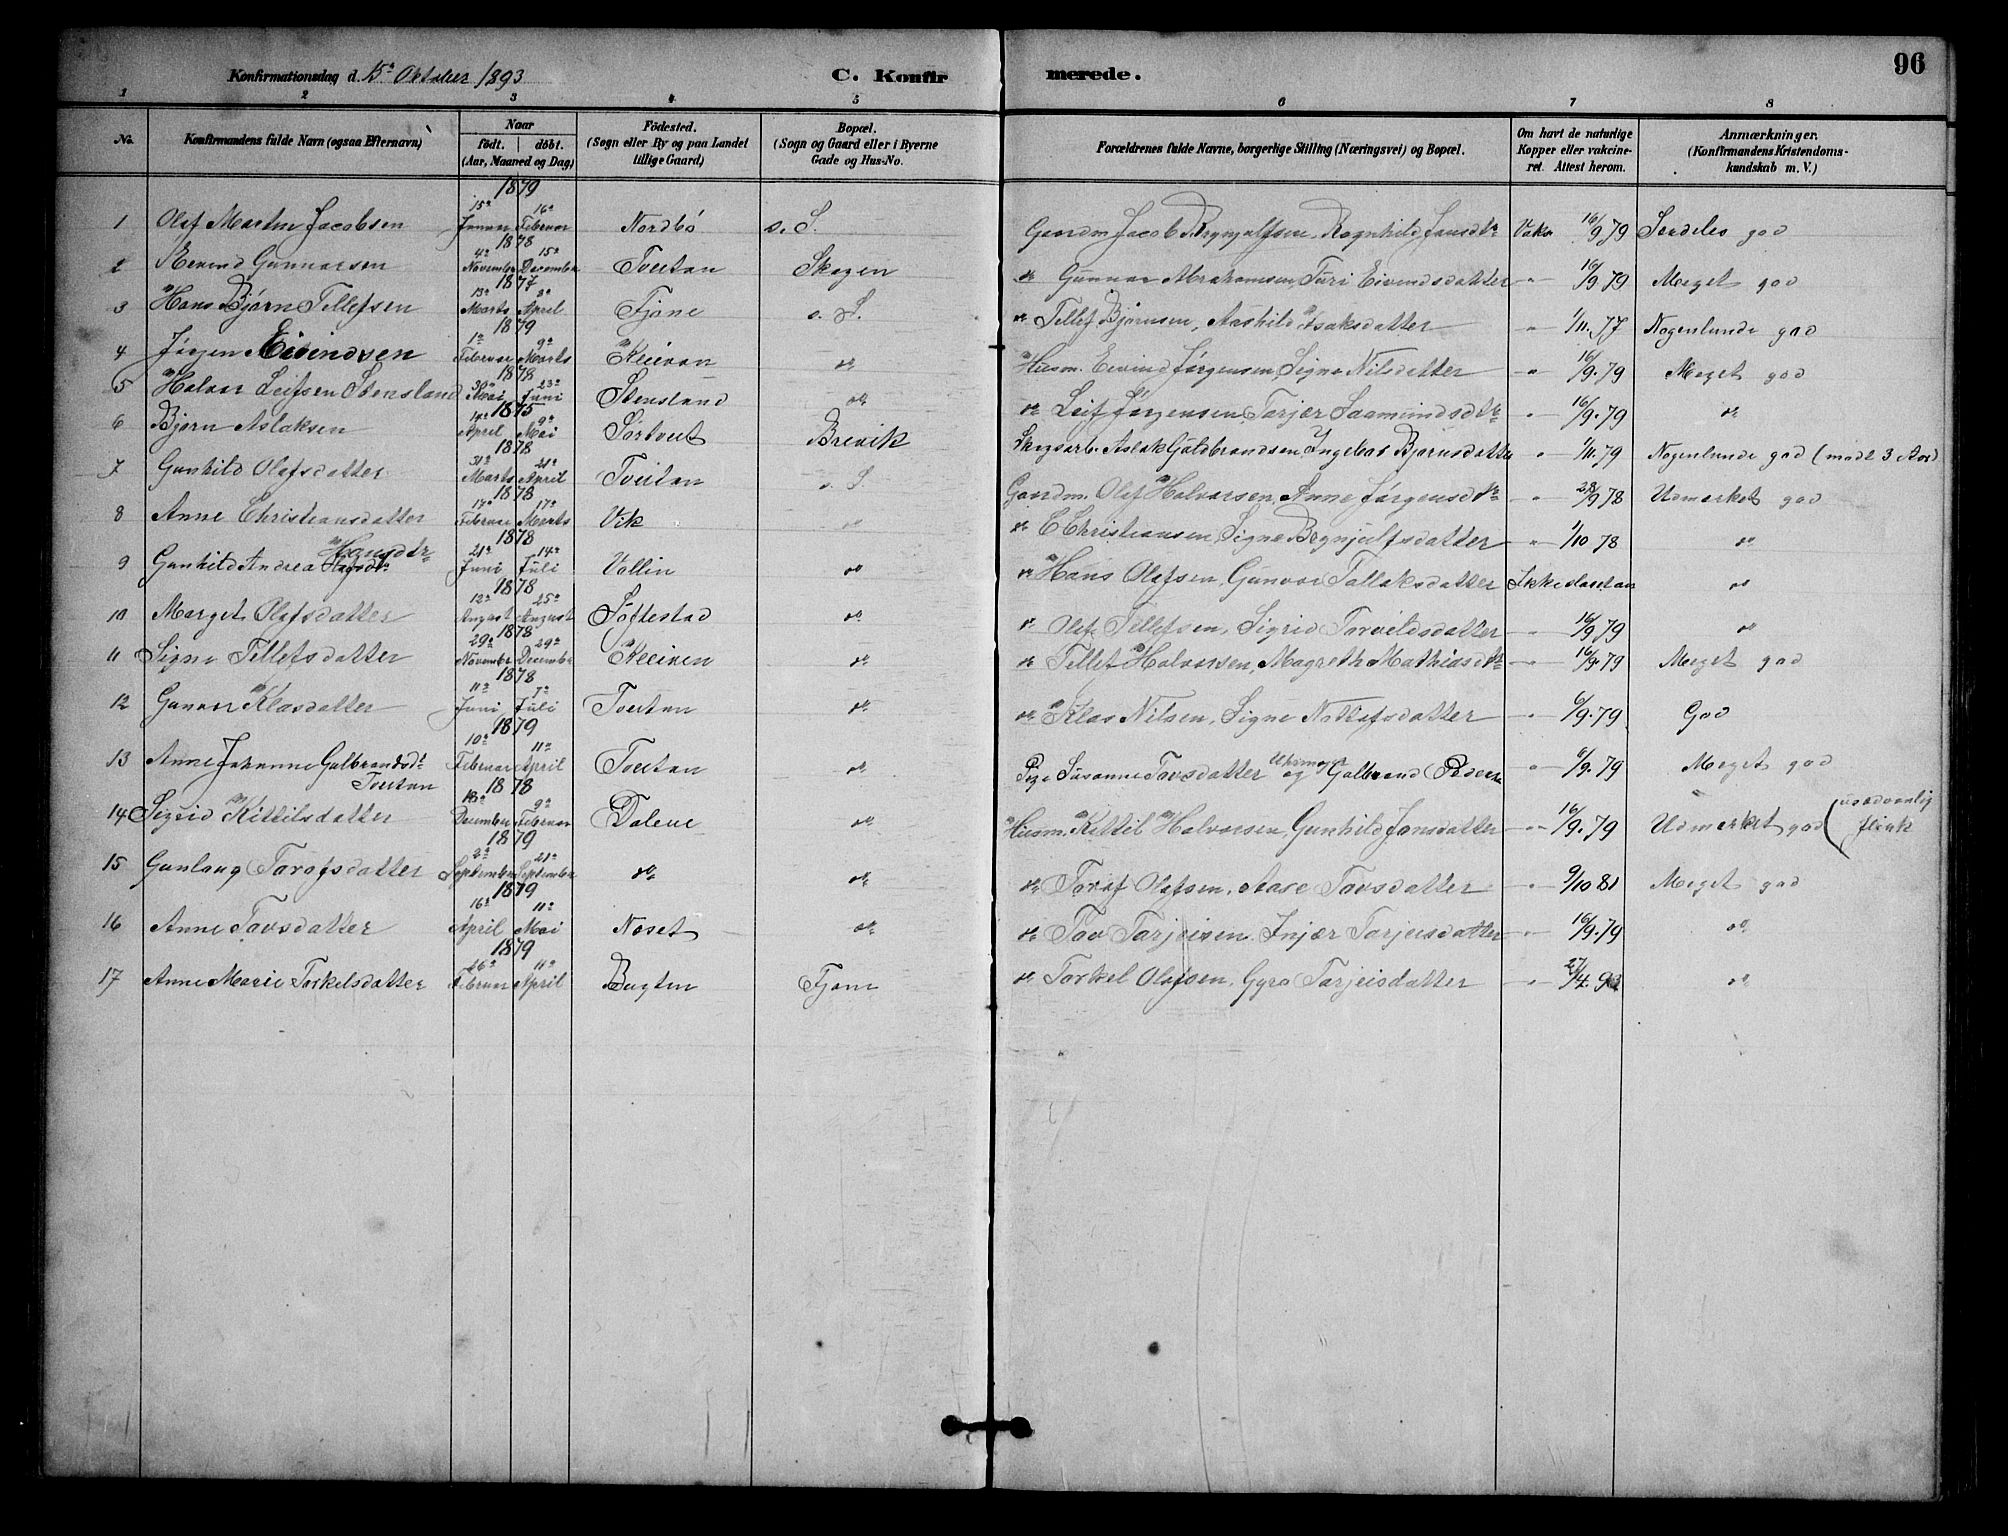 Konfirmationsdag d. 15de Oktober 1893
C. Konfirmerede.
96
1 2 3 4 5 6 7 8
No. | Konfirmandens fulde Navn (ogsaa Efternavn) | Naar født. døbt. (Aar, Maaned og Dag) | Fødested. (Sogn eller By og paa Landet tillige Gaard) | Bopæl. (Sogn og Gaard eller i Byerne Gade og Hus-No. | Forældrenes fulde Navne, borgerlige Stilling (Næringsvei) og Bopæl. | Om havt de naturlige Kopper eller vakcineret. Attest herom. | Anmærkninger. (Konfirmandens Kristendomskundskab m. V.)
1 Olaf Martin Jacobsen 1879 15de Januar 16de Februar Nordbö s. S. Gaardm. Jacob Brynjulfsen, Ragnhild Jansdtr Vakc 16/9 79 Serdeles god
2 Eivind Gunnarsen 1878 4de November 15de December Tveitan Skogen do Gunnar Abrahamsen, Turi Eivendsdatter " 16/9 79 Meget god
3 Hans Bjørn Tellefsen 1877 13de Marts 8de April Fjone s. S. do Tellef Bjørnsen, Aashild Isaksdatter " 1/11. 77 Nogenlunde god
4 Jørgen Eivindsen 1879 1de Februar 9de Marts Kleivan do Husm. Eivind Jørgensen, Signe Nilsdatter " 16/9. 79 Meget god
5 Halvor Leifsen Stensland 1878 30de Mai 23de Juni Stensland do do Leif Jørgensen, Tarjær Saamundsdtr " 16/9. 79 do
6 Bjørn Aslaksen 1875 14de April 9de Mai Sörtveit Brevik Skogsarb. Aslak Guldbrandsen, Ingebor Bjørnsdatter " 1/11. 79 Nogenlunde god (mødt 3 Aar)
7 Gunhild Olafsdatter 1878 31de Marts 21de April Tveitan s. S. Gaardm. Olaf Halvorsen, Anne Jørgensdtr " 28/9 78 Udmerket god
8 Anne Christiansdatter 1878 17de Februar 17de Marts Vik do do E Christiansen, Signe Brynjulfsdatter " 1/10 78 do
9 Gunhild Andrea Hansdtr 1878 21de Juni 14de Juli Vallin do do Hans Olafsen, Gunvor Tallaksdatter Ikke do
10 Marget Olafsdatter 1878 12de August 25de August Söftestad do do Olaf Tellefsen, Sigrid Torvildsdatter " 16/9 79 do
11 Signe Tellefsdatter 1878 29de November 29de December Kleiven do do Tellef Halvorsen, Magreth Mathiasdtr " 16/9. 79 Meget god
12 Gunvor Klasdatter 1878 11de Juni 7de Juli Tveitan do do Klas Nilsen, Signe Nottofsdatter " 6/9. 79 God
13 Anne Johanne Gulbrandsdtr Tveitan 1879 10de Februar 11de April Tveitan do Pige Susanne Tovsdatter og Ukmager Gulbrand Pedersen " 6/9. 79 Meget god
14 Sigrid Kittilsdatter 1878 18de December 9de Februar Dalene do Husm. Kittil Halvorsen, Gunhild Jonsdatter " 16/9. 79 Udmerket god (usædvanlig flink
15 Gunlaug Torofsdatter 1879 2de September 21de September do do do Torof Olafsen, Aase Tovsdatter " 9/10 81 Meget god
16 Anne Tovsdatter 1879 16de April 11de Mai Noset do do Tov Tarjeisen, Injær Tarjeisdatter " 16/9. 79 do
17 Anne Marie Torkelsdatter 1879 26de Februar 11de April Bugten Fjone do Torkel Olafsen, Gyro Tarjeisdatter " 27/4. 93 do